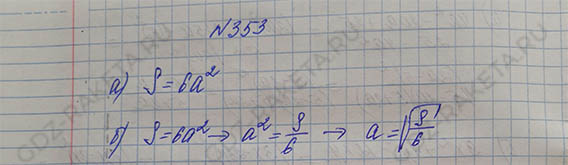 №353
а) S = 6a²
б) S = 6a² → a² = S/6 → a = √(S/6)
GDZ-RAKETA.RU